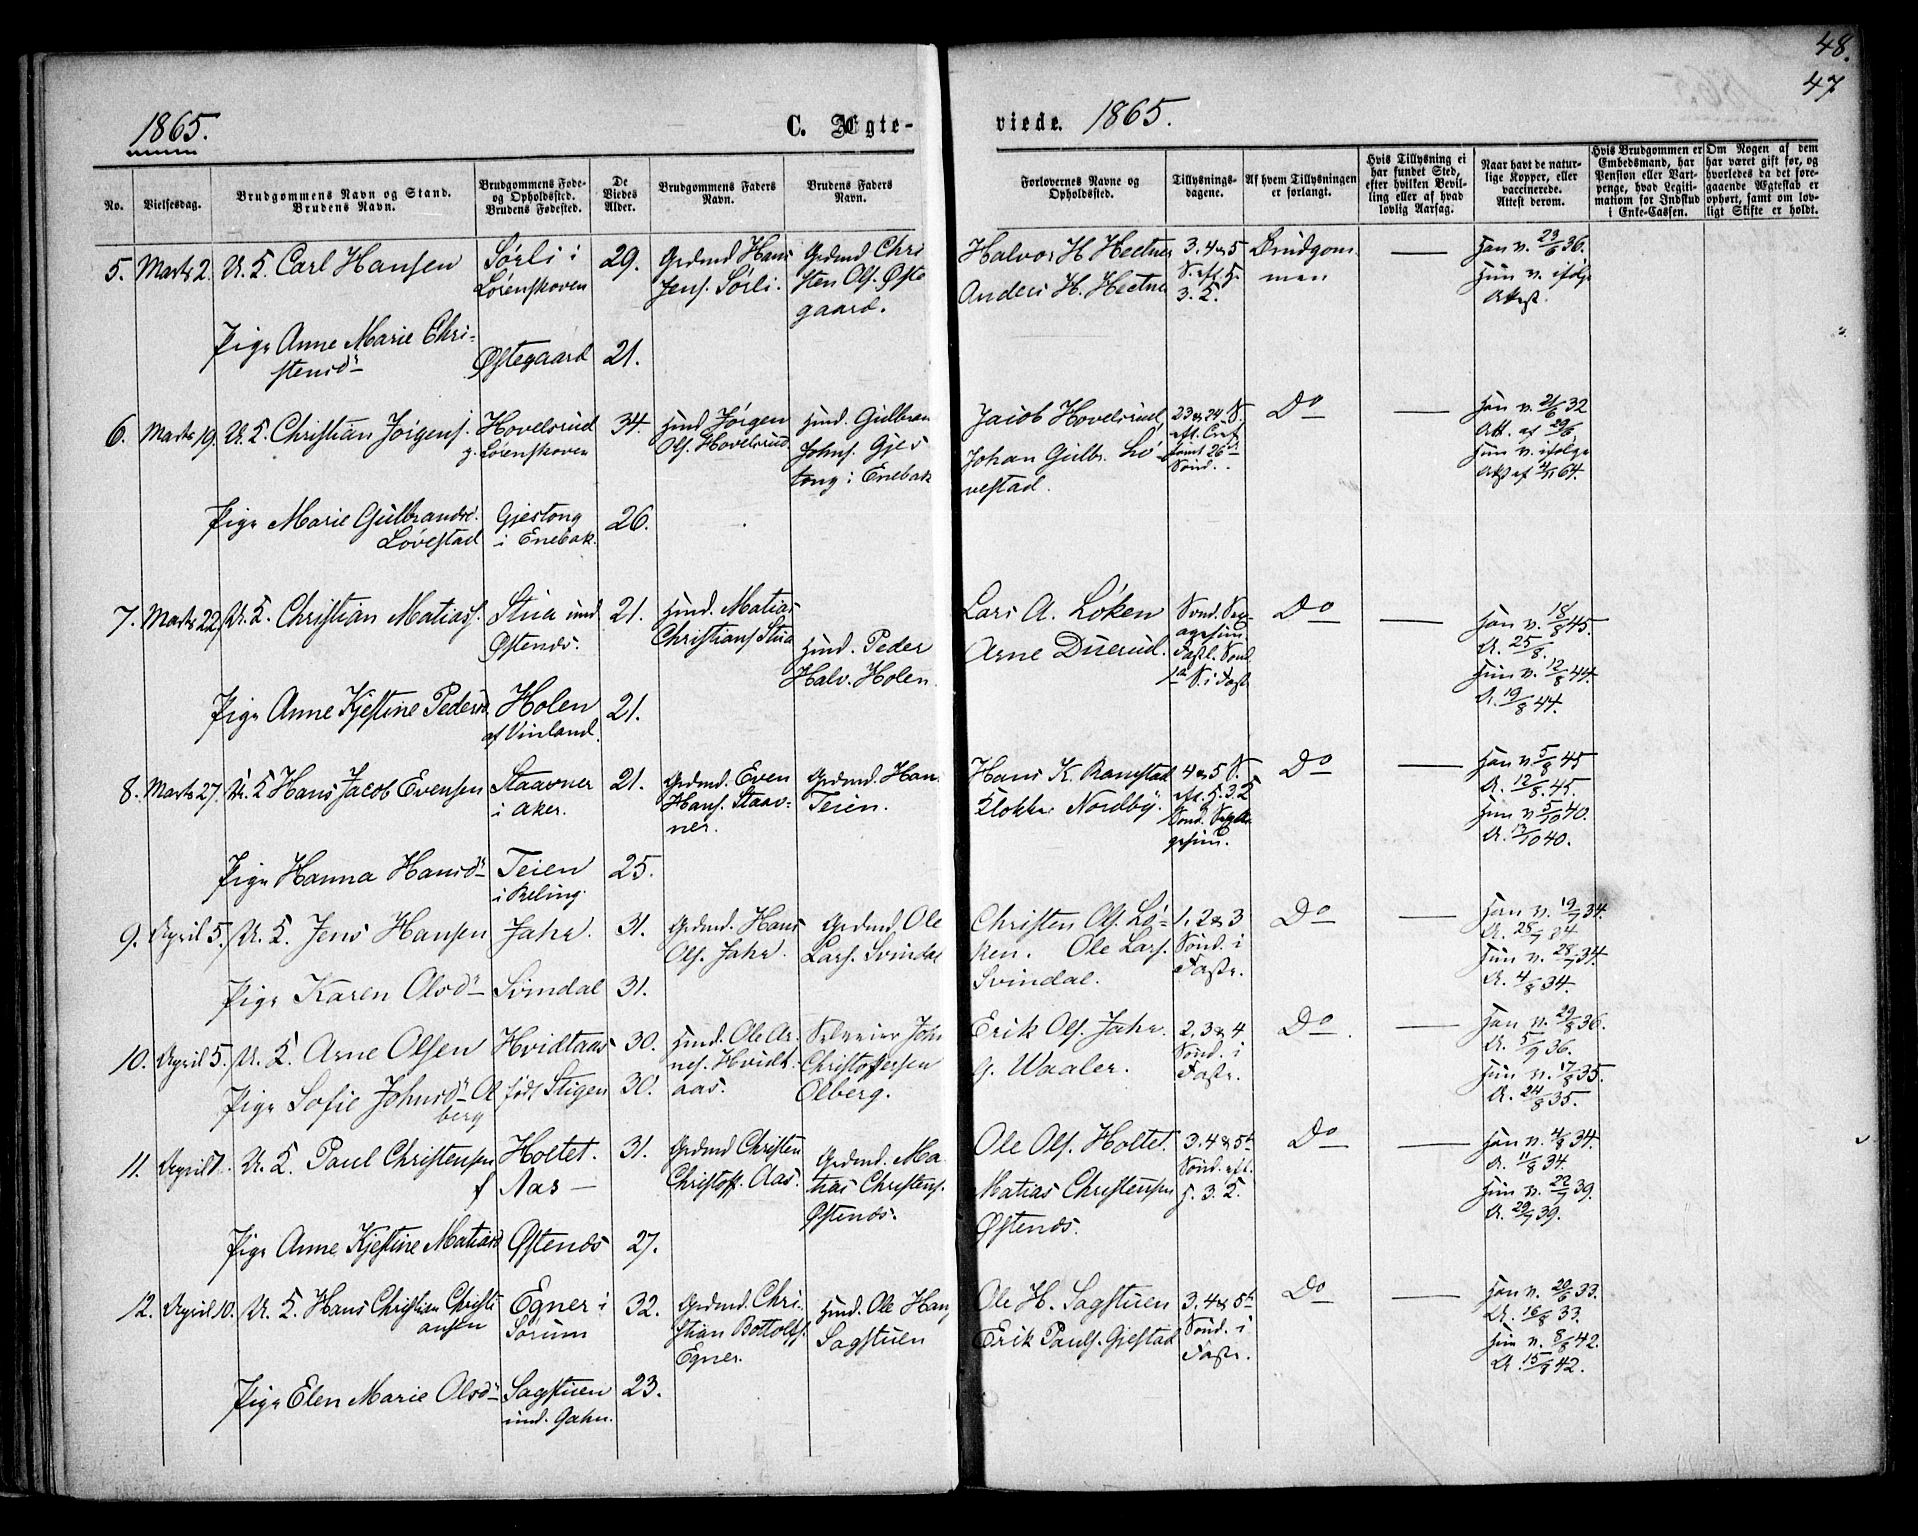 48.
47
1865.
C. Ægte-
viede.
1865.
No.
Vielsesdag.
Brudgommens Navn og Stand.
Brudens Navn.
Brudgommens Føde- og Opholdssted.
Brudens Fødested.
De Viedes Alder.
Brudgommens Faders Navn.
Brudens Faders Navn.
Forlovernes Navne og Opholdssted.
Tillysnings-dagene.
Af hvem Tillysningen er forlangt.
Hvis Tillysning ei har fundet Sted, efter hvilken Bevilling eller af hvad lovlig Aarsag.
Naar havt de naturlige Kopper, eller vaccinerede. Attest derom.
Hvis Brudgommen er Embedsmand, har Pension eller Vartpenge, hvad Legitimation for Indskud i Enke-Cassen.
Om Nogen af dem har været gift før, og hvorledes da det foregaaende Ægteskab er ophørt, samt om lovligt Skifte er holdt.
5. Marts 2. U. K. Carl Hansen
Sørli i
Lørenskoven
29.
Grdmd Hans
Jens. Sørli.
Grdmd Chri
sten Ols. Øste
gaard.
Halvor H. Hectner
Anders H. Hectner
3. 4 & 5
S. eft. H.
3. K.
Brudgom
men
Han v. 23/6 36.
Hun v. ifølge
Attest.
Pige Anne Marie Chri-
stensd
Østegaard
21.
6. Marts 19. U. K. Christian Jørgens.
Hovelsrud
g. Lørenskoven
34.
Hmd Jørgen
Ols. Hovelsrud
Hmd. Gulbran
Johns. Gjes
tong i Enebak
Jacob Hovelsrud
Johan Gulbr. Lø-
vestad.
23 & 24 S.
samt 26
Sønd.
Do
Han v. 21/6 32
Att. af 29/6
Hun v. ifølge
Att af 4/11 64.
Pige Marie Gulbrandsd.
Løvestad
Gjestong
i Enebak.
26.
7. Marts 22. U. K. Christian Matiass.
Stua und
Østends.
21.
Hmd. Matias
Christians Stua
Hmd. Peder
Halv. Holen.
Lars A. Løken
Arne Duerud.
Sønd. Sep-
agesim.
Fastl. Sønd
1ste S. i Faste
Do
Han v. 18/8 45.
A. 25/8.
Hun v. 12/8 44.
A. 19/8 44.
Pige Anne Kjestine Pedersd
Holen
af Vinland.
21.
8. Marts 27. U. K. Hans Jacob Evensen
Staavner
i Aker.
21.
Grdmd. Even
Hans. Staav-
ner.
Grdmd. Hans
Teien.
Hans K. Ramstad
Klokker Nordby.
4 & 5 S.
eft. H. 3. K
Sønd. Septua
gesim.
Do
Han v. 5/8 45
A. 12/8. 45.
Hun v. 5/10 40.
A. 12/10 40.
Pige Hanna Hansd
Teien
i Reling.
25.
9. April 5. U. K. Jens Hansen
Jahr.
31.
Grdmd. Hans
Ols. Jahr.
Grdmd. Ole
Lars. Svindal
Christen Ols. Lø-
ken. Ole Lars.
Svindal.
1. 2 & 3
Sønd. i
Faste.
Do
Han v. 19/7 34.
A. 28/7 34
Hun v. 28/7 34.
A. 4/8 34.
Pige Karen Olsd
Svindal
31.
10. April 5. U. K. Arne Olsen
Hvidtaas
30.
Hmd. Ole Ar-
nes. Hvidt-
aas.
Selveier John
Christoffersen
Olberg.
Erik Ols. Jahr.
G. Waaler.
2. 3 & 4.
Sønd. i
Faste.
Do
Han v. 29/8 36.
A. 5/9 36.
Hun v. 17/8 35.
A. 24/8 35.
Pige Sofie Johnsd Ol
berg
født Stigen
30.
11. April 7. U. K. Paul Christensen
Holtet.
f Aas
31.
Grdmd Christen
Christoff. Aas.
Grdmd. Ma
tias Christens.
Østends.
Ole Ols. Holtet.
Matias Christensen
Østends.
3. 4 & 5te
Sønd. eft.
H. 3. K.
Do
Han v. 4/8 34.
A. 11/8 34.
Hun v. 22/7 39.
A. 29/7 39.
Pige Anne Kjestine Matiasd
Østends
27.
12. April 10. U. K. Hans Christian Christi
ansen
Egner i
Sørum
32.
Grdmd. Chri-
stian Bottolfs.
Egner.
Hmd. Ole Hans
Sagstuen
Ole H. Sagstuen
Erik Pauls. Gjestad
3. 4 & 5te
Sønd. i
Faste.
Do
Han v. 20/6 33.
A. 16/8 33.
Hun v. 8/8 42.
A. 15/9 42.
Pige Elen Marie Olsd
Sagstuen
und. Gahn.
23.